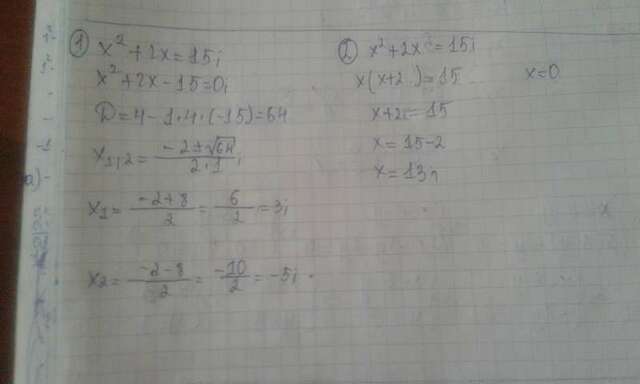 ① x² + 2x = 15;
x² + 2x - 15 = 0;
D = 4 - 1·4·(-15) = 64
x₁,₂ = (-2 ± √64) / (2·1);
x₁ = (-2 + 8) / 2 = 6 / 2 = 3;
x₂ = (-2 - 8) / 2 = -10 / 2 = -5;
② x² + 2x = 15;
x(x + 2) = 15 x = 0
x + 2 = 15
x = 15 - 2
x = 13,